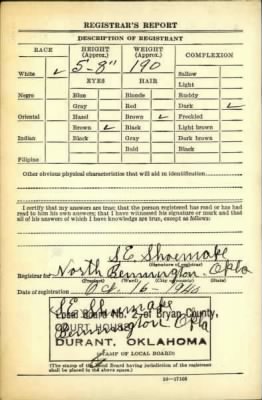 REGISTRAR'S REPORT
DESCRIPTION OF REGISTRANT
RACE HEIGHT (Approx.) WEIGHT (Approx.) COMPLEXION
5-8" 190
White ✓ Sallow
EYES HAIR Light
Negro Blue Blonde Ruddy
Gray Red Dark ✓
Oriental Hazel Brown ✓ Freckled
Brown ✓ Black Light brown
Indian Black Gray Dark brown
Bald Black
Filipino
Other obvious physical characteristics that will aid in identification
I certify that my answers are true; that the person registered has read or has had
read to him his own answers; that I have witnessed his signature or mark and that
all of his answers of which I have knowledge are true, except as follows:
S.E. Shoemake
(Signature of registrar)
Registrar for North Bennington Okla
(Precinct) (State)
Date of registration Oct. 16-1940
S.E. Shoemake
Local Board No. 2 of Bryan County,
COURT HOUSE
Bennington Okla
DURANT, OKLAHOMA
(STAMP OF LOCAL BOARD)
(The stamp of the Local Board having jurisdiction of the registrant
shall be placed in the above space.)